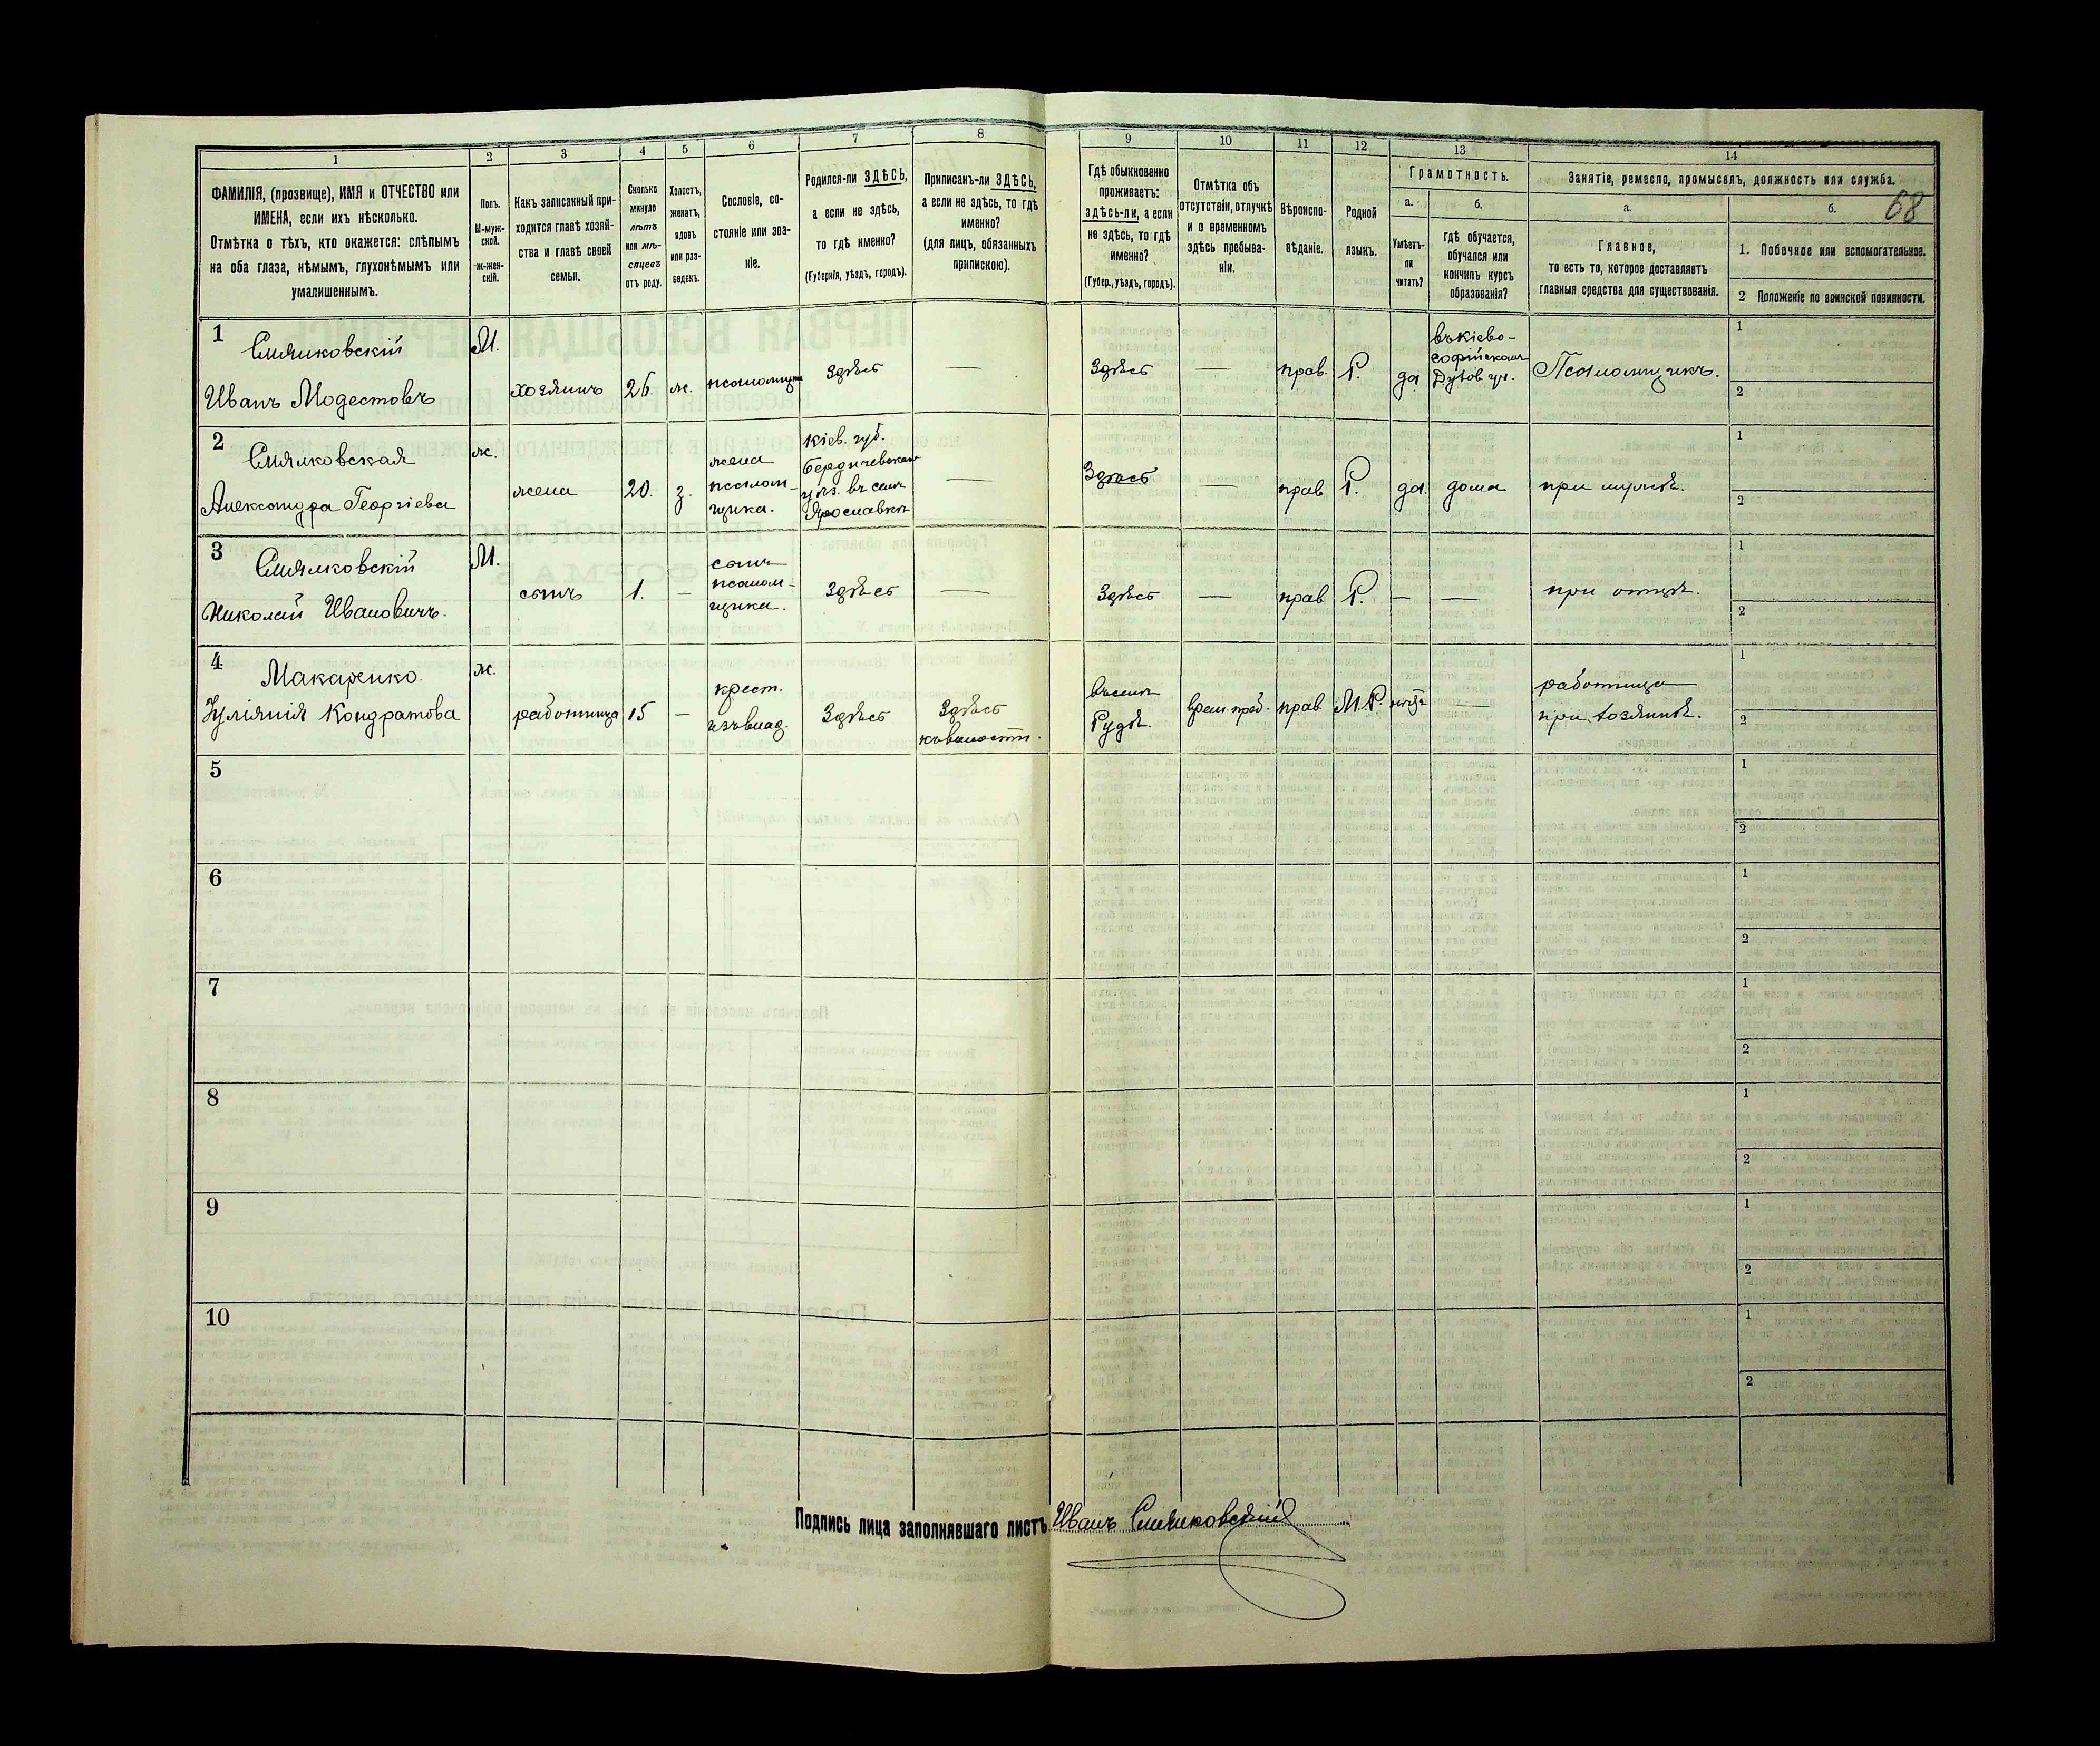 1
2
3
4
5
6
7
8
9
10
11
12
13
14
68
ФАМИЛІЯ, (прозвище), ИМЯ и ОТЧЕСТВО или
ИМЕНА, если ихъ нѣсколько.
Отмѣтка о тѣхъ, кто окажется: слѣпымъ
на оба глаза, нѣмымъ, глухонѣмымъ или
умалишеннымъ.
Полъ.
М-муж-
ской.
ж-жен-
скій.
Какъ записанный при-
ходится главѣ хозяй-
ства и главѣ своей
семьи.
Сколько
минуло
лѣтъ
или мѣ-
сяцевъ
отъ роду.
Холостъ,
женатъ,
вдовъ
или раз-
веденъ.
Сословіе, со-
стояніе или зва-
ніе.
Родился-ли ЗДѢСЬ,
а если не здѣсь,
то гдѣ именно?
(Губернія, уѣздъ, городъ).
Приписанъ-ли ЗДѢСЬ,
а если не здѣсь, то гдѣ
именно?
(для лицъ, обязанныхъ
припискою).
Гдѣ обыкновенно
проживаетъ:
здѣсь-ли, а если
не здѣсь, то гдѣ
именно?
(Губер., уѣздъ, городъ).
Отмѣтка объ
отсутствіи, отлучкѣ
и о временномъ
здѣсь пребыва-
ніи.
Вѣроиспо-
вѣданіе.
Родной
языкъ.
Грамотность.
а.
Умѣетъ-
ли
читать?
б.
гдѣ обучается,
обучался или
кончилъ курсъ
образованія?
Занятіе, ремесло, промыселъ, должность или служба.
а.
Главное,
то есть то, которое доставляетъ
главныя средства для существованія.
б.
1. Побочное или вспомогательное.
2 Положеніе по воинской повинности.
1
Иванъ Модестовъ
М.
хозяинъ
26.
ж.
Здѣсь
—
Здѣсь
—
прав.
Р.
да
въ Кіево-
Софійскомъ
Духов уч.
Псаломщикъ.
1
2
2
Александра Георгіева
ж.
жена
20.
з.
жена
псалом-
щика.
Кіев. губ.
Бердичевскаго
уѣз. въ селѣ
Ярославкѣ
—
Здѣсь
—
прав
Р.
да
дома
при мужѣ.
1
2
3
Николай Ивановичъ.
М.
сынъ
1.
—
сынъ
псалом-
щика.
Здѣсь
—
Здѣсь
—
прав
Р.
—
—
при отцѣ.
1
2
4
Макаренко
Іуліянія Кондратова
ж.
работница
15
—
крест.
изъ влад.
Здѣсь
Здѣсь
къ волости.
въ селѣ
Рудѣ.
врем. преб.
прав
М.Р.
нѣтъ
—
работница
при хозяинѣ.
1
2
5
1
2
6
1
2
7
1
2
8
1
2
9
1
2
10
1
2
Подпись лица заполнявшаго листъ Иванъ